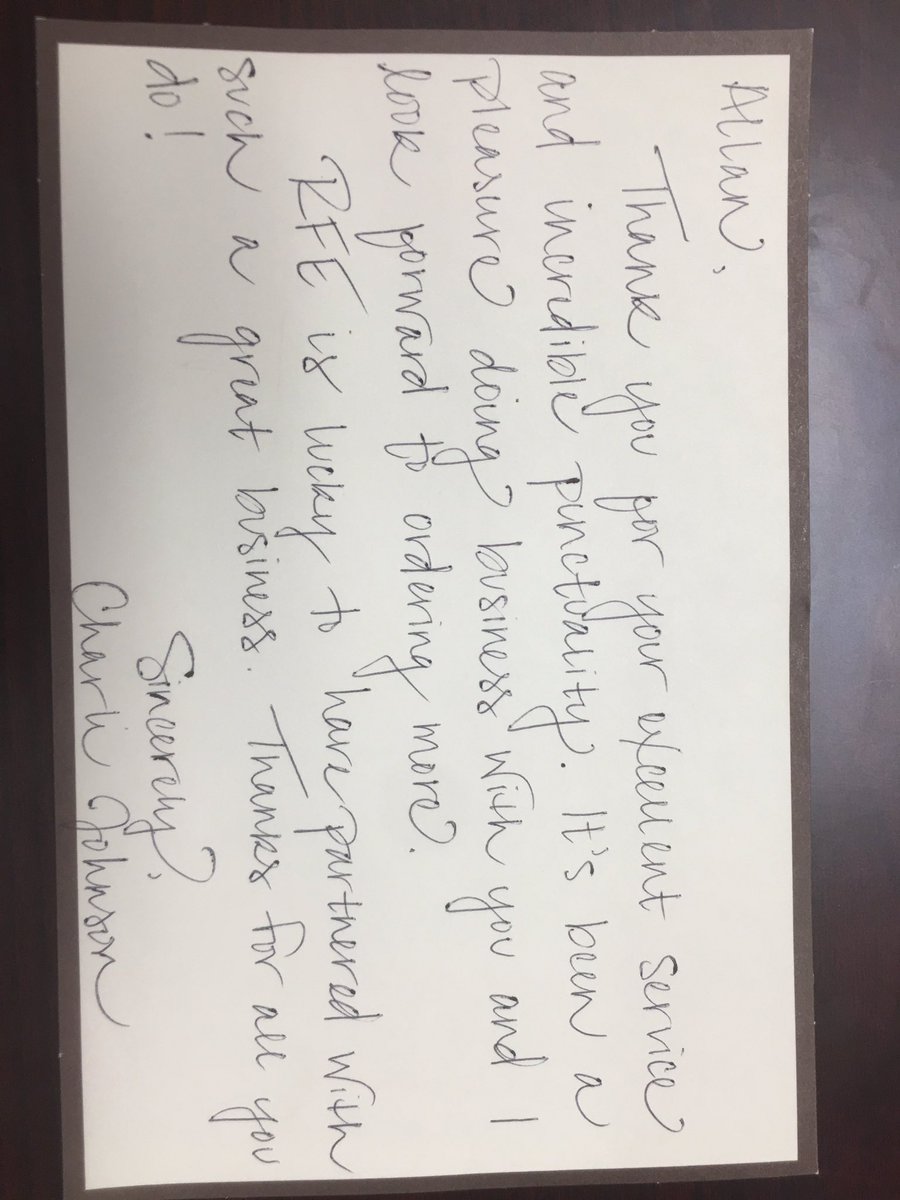 Allan,
Thank you for your excellent service
and incredible punctuality. It's been a
pleasure doing business with you and I
look forward to ordering more.
RFE is lucky to have partnered with
such a great business. Thanks for all you
do!
Sincerely,
Charli Johnson